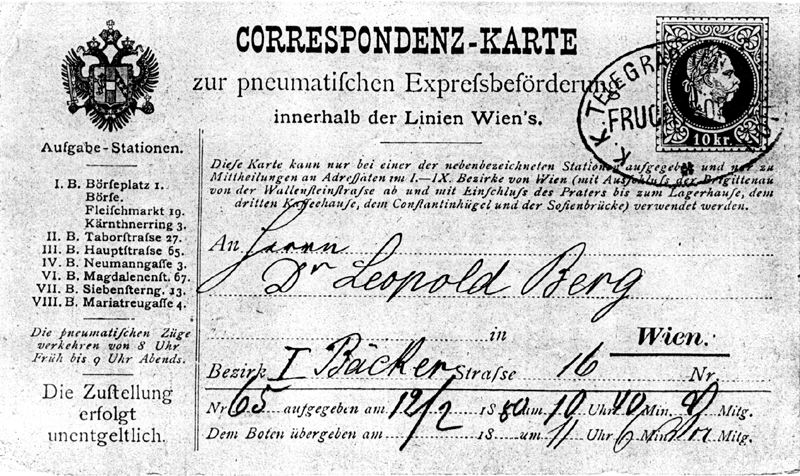 CORRESPONDENZ-KARTE
zur pneumatiſchen Expreſsbeförderung
innerhalb der Linien Wien's.
K. K. TELEGRA
FRUC
10 kr.
Aufgabe-Stationen.
I. B. Börſeplatz 1.
Börſe.
Fleiſchmarkt 19.
Kärnthnerring 3.
II. B. Taborſtraſse 27.
III. B. Hauptſtraſse 65.
IV. B. Neumanngaſſe 3.
VI. B. Magdalenenſt. 67.
VII. B. Siebenſterng. 13.
VIII. B. Mariatreugaſſe 4.
Die pneumatiſchen Züge
verkehren von 8 Uhr
Früh bis 9 Uhr Abends.
Die Zuſtellung
erfolgt
unentgeltlich.
Dieſe Karte kann nur bei einer der nebenbezeichneten Stationen aufgegeben und nur zu
Mittheilungen an Adreſſaten im I.—IX. Bezirke von Wien (mit Ausſchluſs der Brigittenau
von der Wallenſteinſtraſse ab und mit Einſchluſs des Praters bis zum Lagerhauſe, dem
dritten Kaffeehauſe, dem Conſtantinhügel und der Sofienbrücke) verwendet werden.
An Herrn
Dr Leopold Berg
in Wien.
Bezirk I Bäckerstraſse 16 Nr.
Nr. 65 aufgegeben am 12/2 18 80 um 10 Uhr 40 Min. Mitg.
Dem Boten übergeben am 18 um 11 Uhr 6 Min. Mitg.